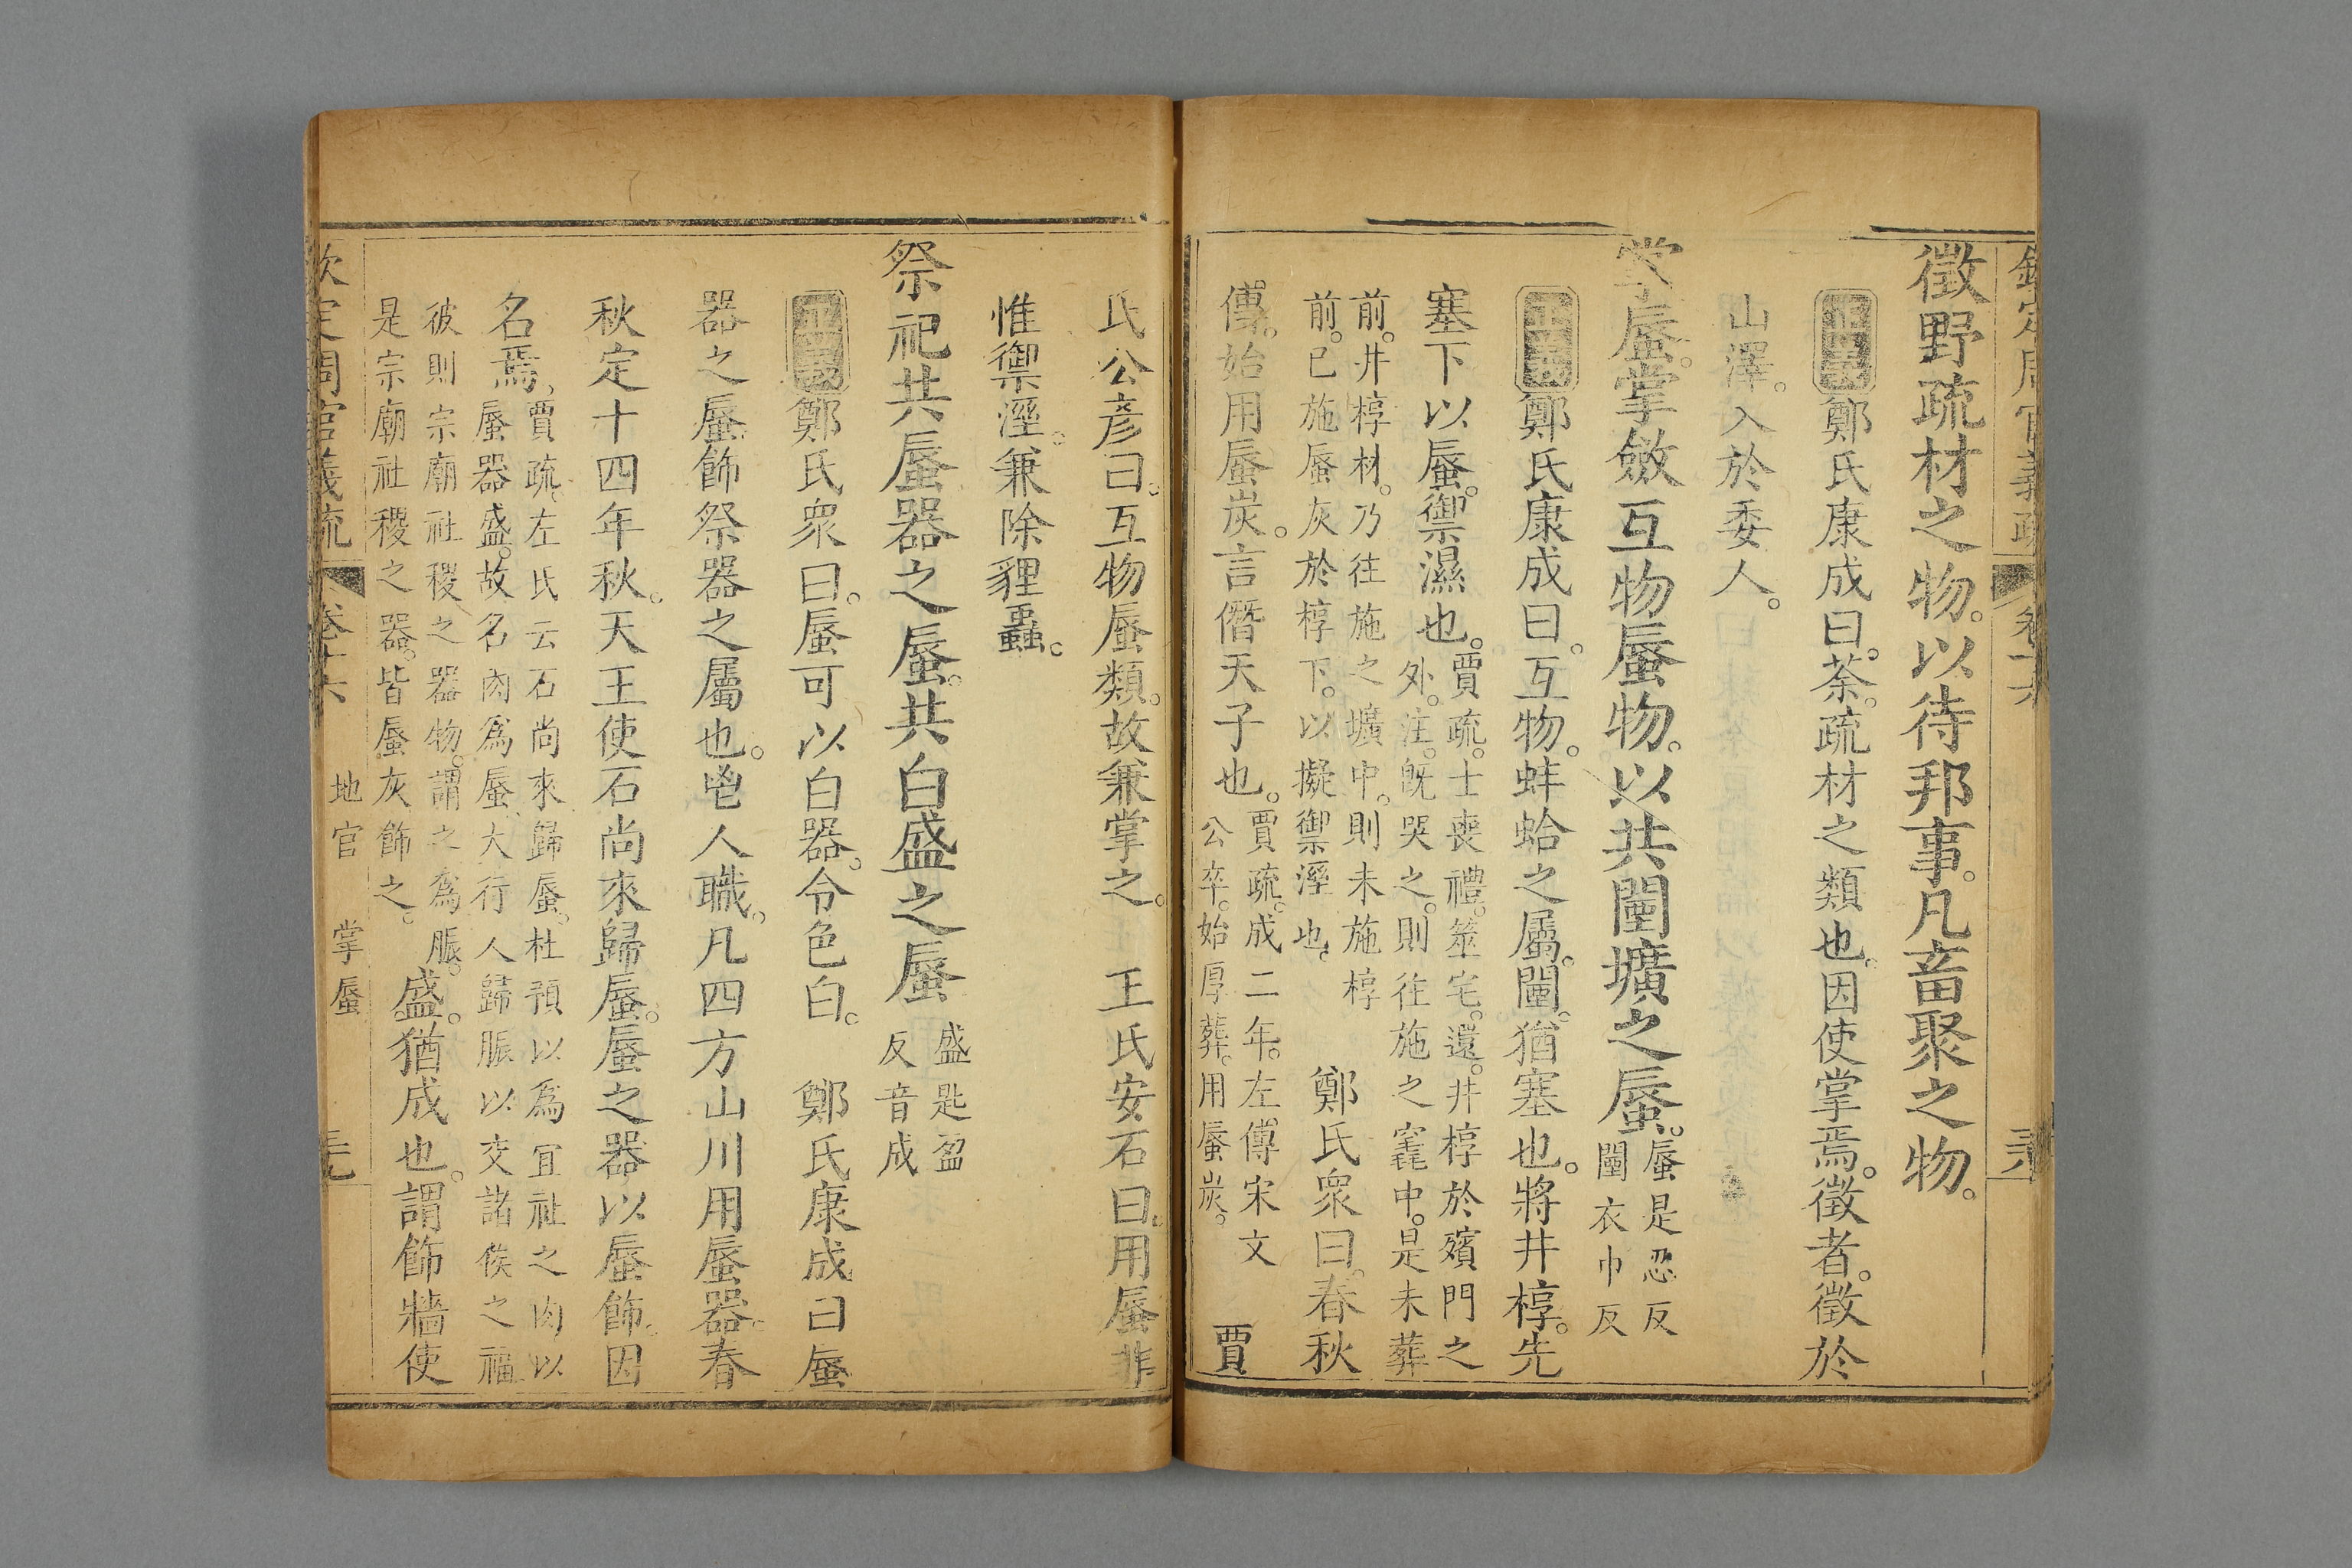 欽定周官義疏 卷十六
徵野疏材之物。以待邦事。凡畜聚之物。
正義鄭氏康成曰。荼。疏材之類也。因使掌焉。徵者。徵於
山澤。入於委人。
掌蜃。掌斂互物蜃物。以共闉壙之蜃。蜃是忍反
闉衣巾反
正義鄭氏康成曰。互物。蚌蛤之屬。闉。猶塞也。將井椁。先
塞下以蜃。禦濕也。賈疏。士喪禮。筮宅。還。井椁於殯門之
外。注。旣哭之。則往施之窀中。是未葬
前。井椁材。乃往施之壙中。則未施椁
前。已施蜃灰於椁下。以擬禦溼也。 鄭氏衆曰。春秋
傳。始用蜃炭。言僭天子也。賈疏。成二年。左傳宋文
公卒。始厚葬。用蜃炭。 賈
氏公彥曰。互物蜃類。故兼掌之。 王氏安石曰。用蜃非
惟禦溼。兼除貍蟲。
祭祀共蜃器之蜃。共白盛之蜃 盛匙盈
反音成
正義鄭氏衆曰。蜃可以白器。令色白。 鄭氏康成曰蜃
器之蜃飾祭器之屬也。鬯人職。凡四方山川用蜃器。春
秋定十四年秋。天王使石尚來歸蜃。蜃之器以蜃飾。因
名焉。賈疏。左氏云石尚來歸蜃。杜預以爲宜社之肉以
蜃器盛。故名肉爲蜃。大行人歸脤以交諸侯之福
彼則宗廟社稷之器物。謂之爲脤。
是宗廟社稷之器。皆蜃灰飾之。 盛。猶成也。謂飾牆使
欽定周官義疏 卷十六 地官 掌蜃 三九